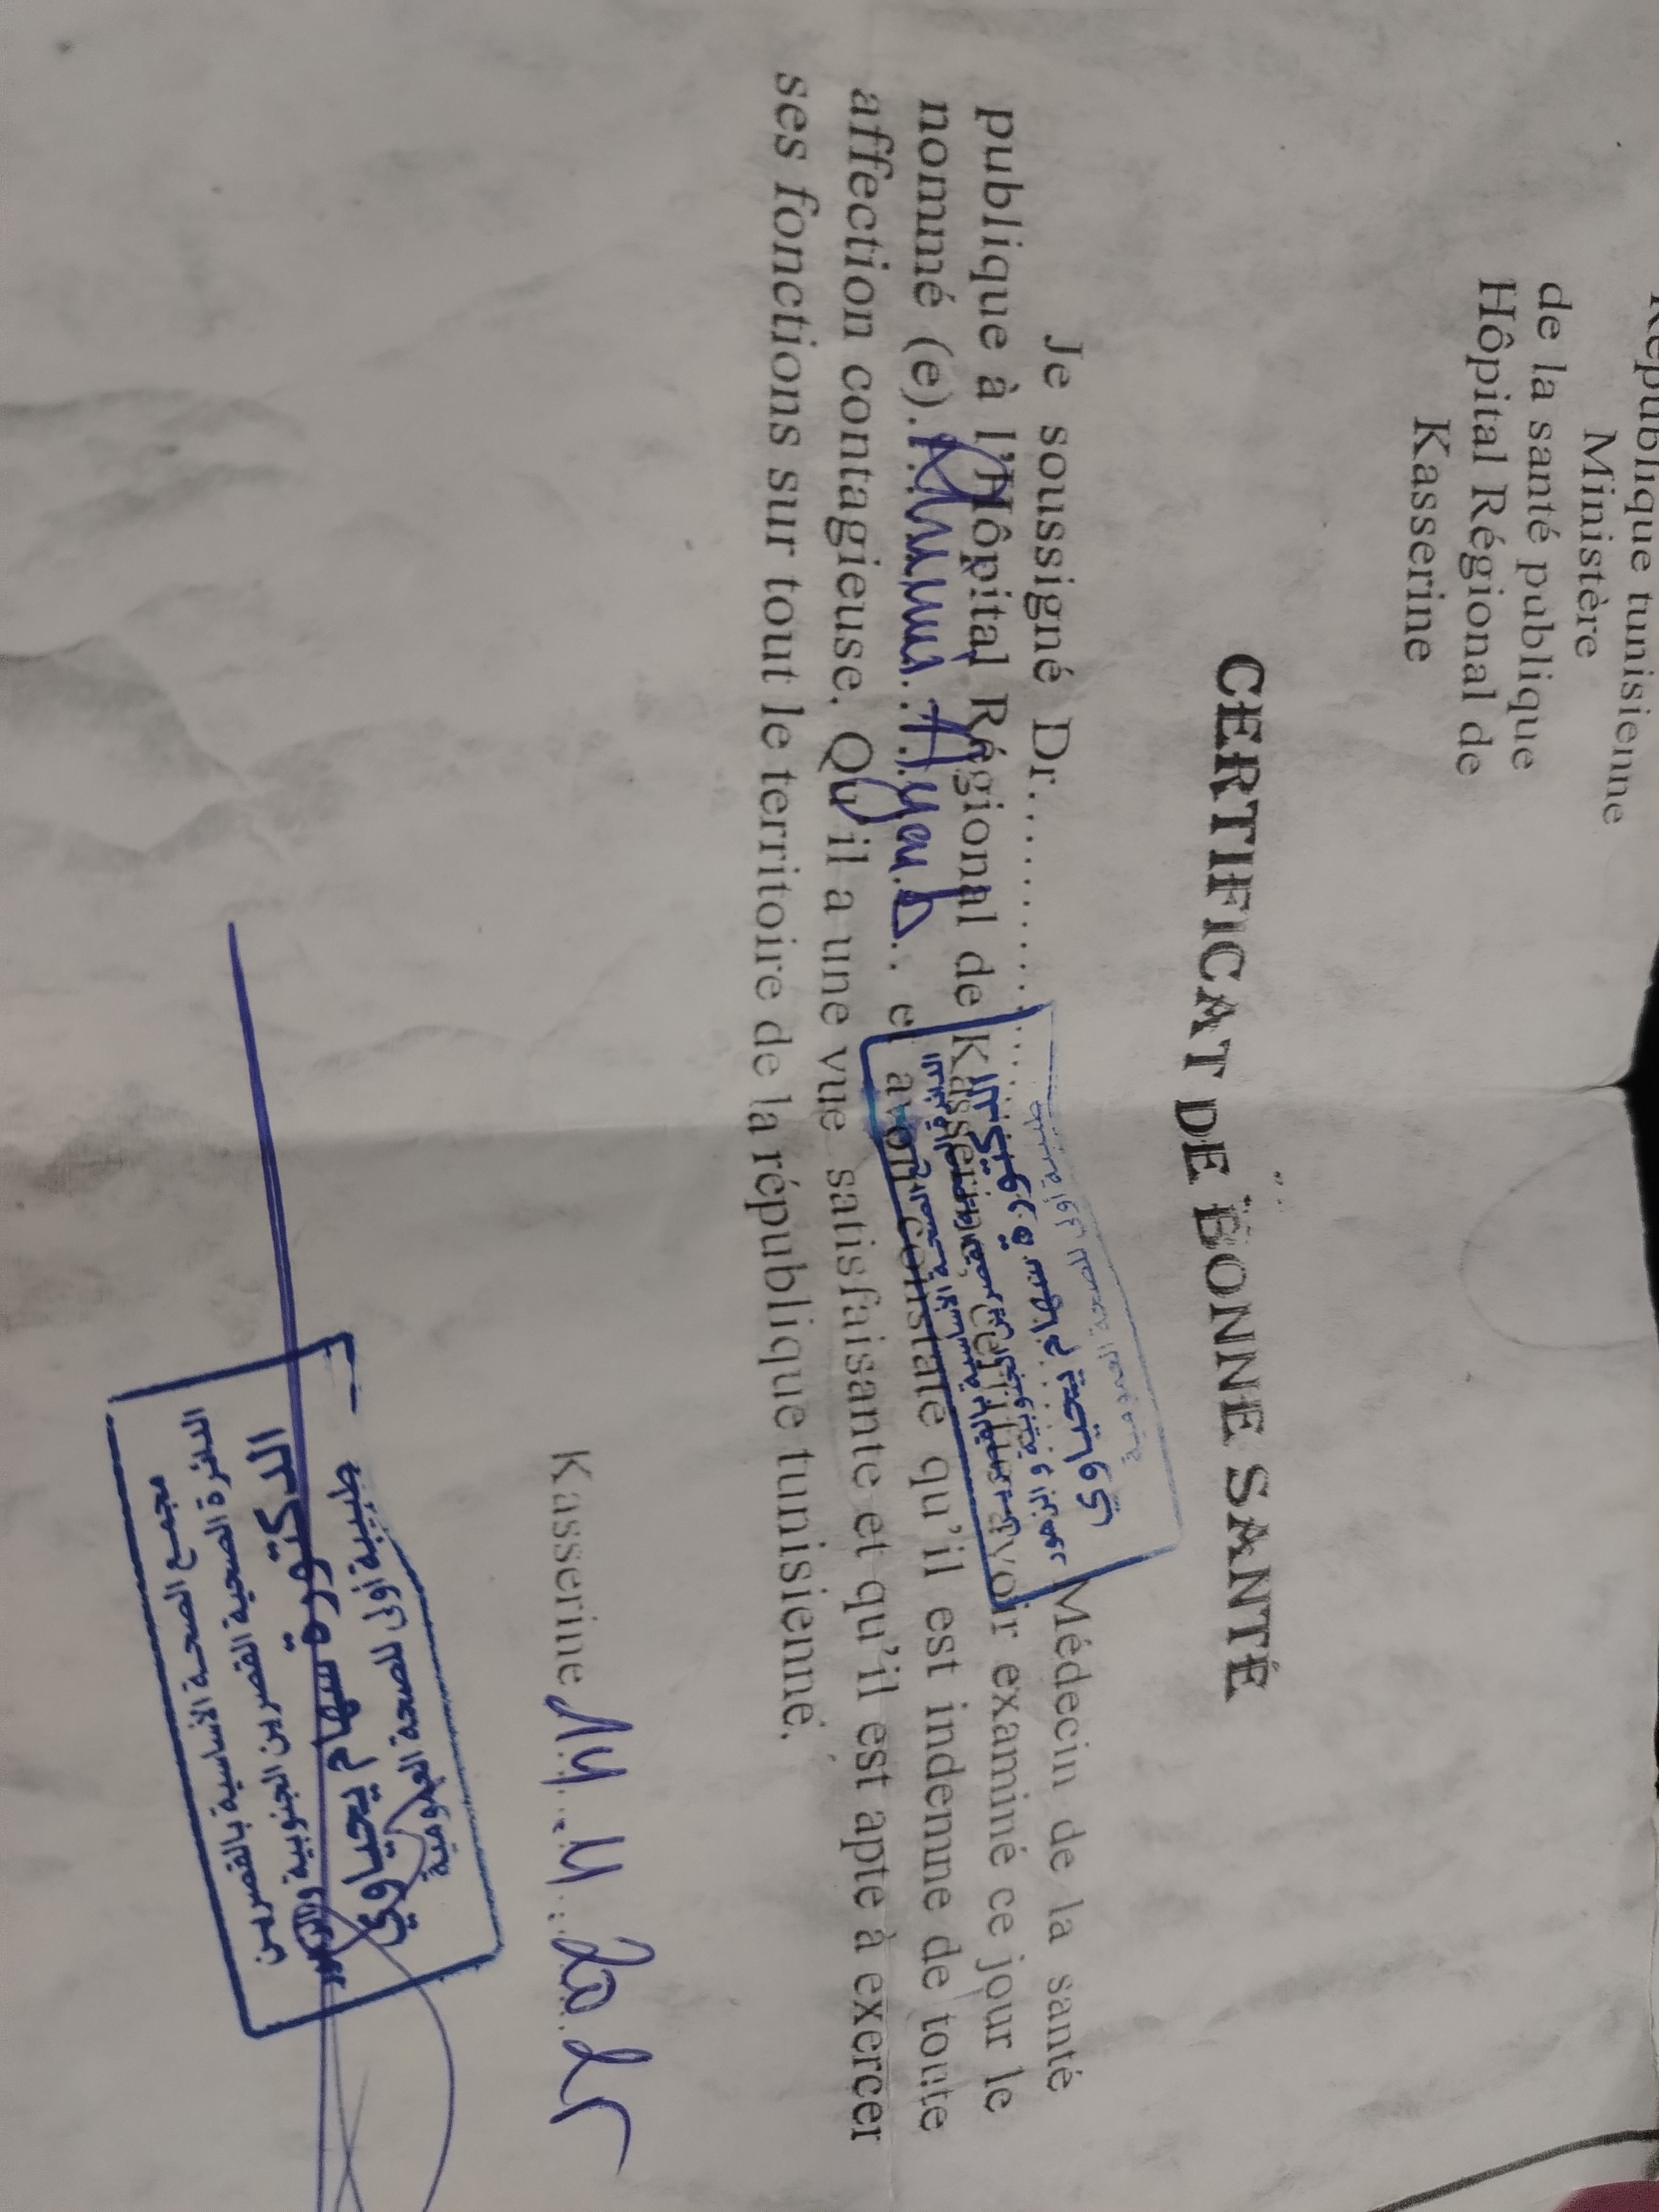 République tunisienne
Ministère
de la santé publique
Hôpital Régional de
Kasserine
CERTIFICAT DE BONNE SANTÉ
Je soussigné Dr.......... Médecin de la santé
طبيبة أولى للصحة العمومية
الدكتورة سهام يحياوي
الدائرة الصحية القصرين الجنوبية و الزهور
مجمع الصحة الأساسية بالقصرين
publique à l'Hôpital Régional de Kasserine, certifie avoir examiné ce jour le
nommé (e) Ayoub et avoir constaté qu'il est indemne de toute
affection contagieuse. Qu'il a une vue satisfaisante et qu'il est apte à exercer
ses fonctions sur tout le territoire de la république tunisienne.
Kasserine
طبيبة أولى للصحة العمومية
الدكتورة سهام يحياوي
الدائرة الصحية القصرين الجنوبية و الزهور
مجمع الصحة الأساسية بالقصرين